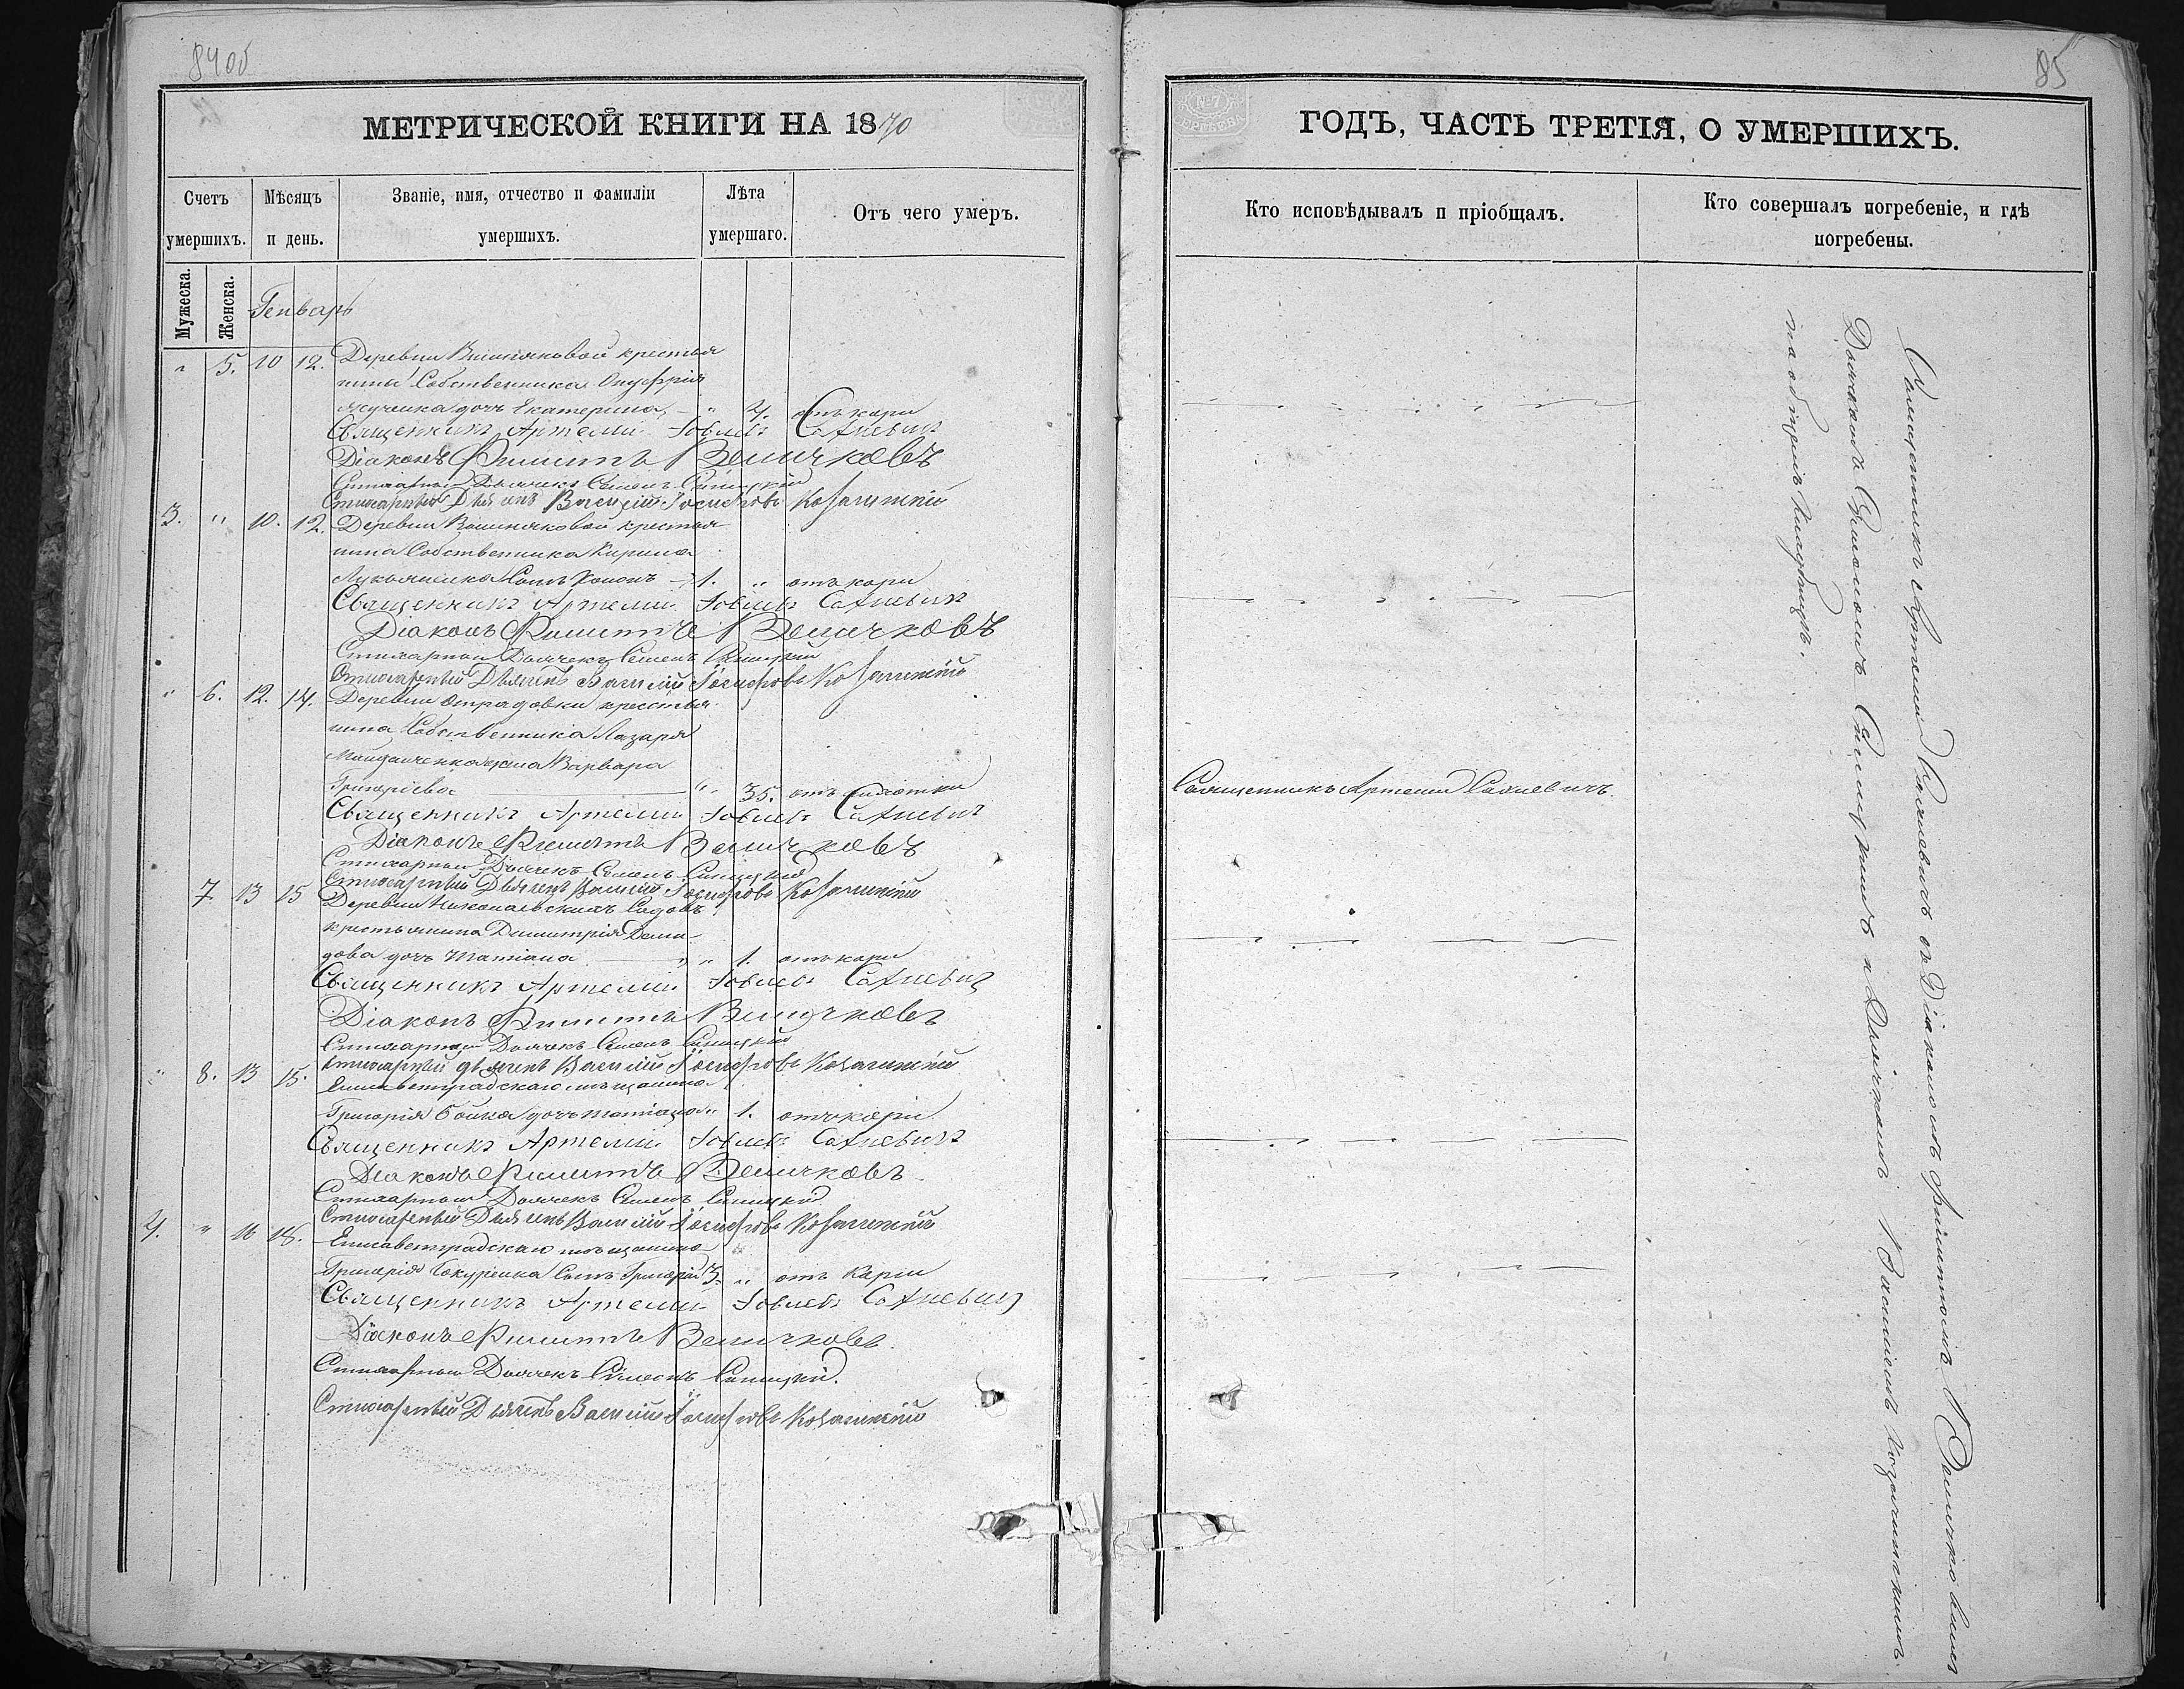 84об
МЕТРИЧЕСКОЙ КНИГИ НА 1870
Счетъ умершихъ.
Мѣсяцъ и день.
Званіе, имя, отчество и фамиліи умершихъ.
Лѣта умершаго.
Отъ чего умеръ.
Мужеска.
Женска.
Генварь
" 5. 10 12. Деревни Вишняковой крестья
нина Собственника Онуфрія
дочь Екатерина, " 4. отъ кори
Священникъ Артемій Іовлевъ Сахневичъ
Діаконъ Филиппъ Величковъ
Стихарный Дьячекъ Семенъ Синицкій
Стихарный Дьячекъ Василій Іосифовъ Козачинскій
3. " 10. 12. Деревни Вишняковой крестья
нина Собственника Кирила
Лукьяненка Сынъ Кононъ 1. " отъ кори
Священникъ Артемій Іовлевъ Сахневичъ
Діаконъ Филиппъ Величковъ
Стихарный Дьячекъ Семенъ Синицкій
Стихарный Дьячекъ Василій Іосифовъ Козачинскій
" 6. 12. 14. Деревни Отрадовки крестья
нина Собственника Лазаря
жена Варвара
Григоріева " 35. отъ чахотки
Священникъ Артемій Іовлевъ Сахневичъ
Діаконъ Филиппъ Величковъ
Стихарный Дьячекъ Семенъ Синицкій
Стихарный Дьячекъ Василій Іосифовъ Козачинскій
7. 13 15 Деревни Николаевскихъ Садовъ
крестьянина Димитрія Деми
дова дочь Татіана " 1. отъ кори
Священникъ Артемій Іовлевъ Сахневичъ
Діаконъ Филиппъ Величковъ
Стихарный Дьячекъ Семенъ Синицкій
Стихарный дьячекъ Василій Іосифовъ Козачинскій
" 8. 13 15. Елисаветградскаго мѣщанина
Григорія Бойка дочь Татіана " 1. отъ кори
Священникъ Артемій Іовлевъ Сахневичъ
Діаконъ Филиппъ Величковъ
Стихарный Дьячекъ Семенъ Синицкій
Стихарный Дьячекъ Василій Іосифовъ Козачинскій
4. " 16 18. Елисаветградскаго мѣщанина
Григорія Сынъ Григорій 3. " отъ Кори
Священникъ Артемій Іовлевъ Сахневичъ
Діаконъ Филиппъ Величковъ.
Стихарный Дьячекъ Семенъ Синицкій.
Стихарный Дьячекъ Василій Іосифовъ Козачинскій
85
№ 7
ГОДЪ, ЧАСТЬ ТРЕТІЯ, О УМЕРШИХЪ.
Кто исповѣдывалъ и пріобщалъ.
Кто совершалъ погребеніе, и гдѣ погребены.
Священникъ Артемій Сахневичъ.
Священникъ Артемій Сахневичъ съ Діакономъ Филиппомъ Величковымъ
Дьячкомъ Симеономъ Синицкимъ и Дьячкомъ Василіемъ Козачинскимъ.
на общемъ кладбищѣ.